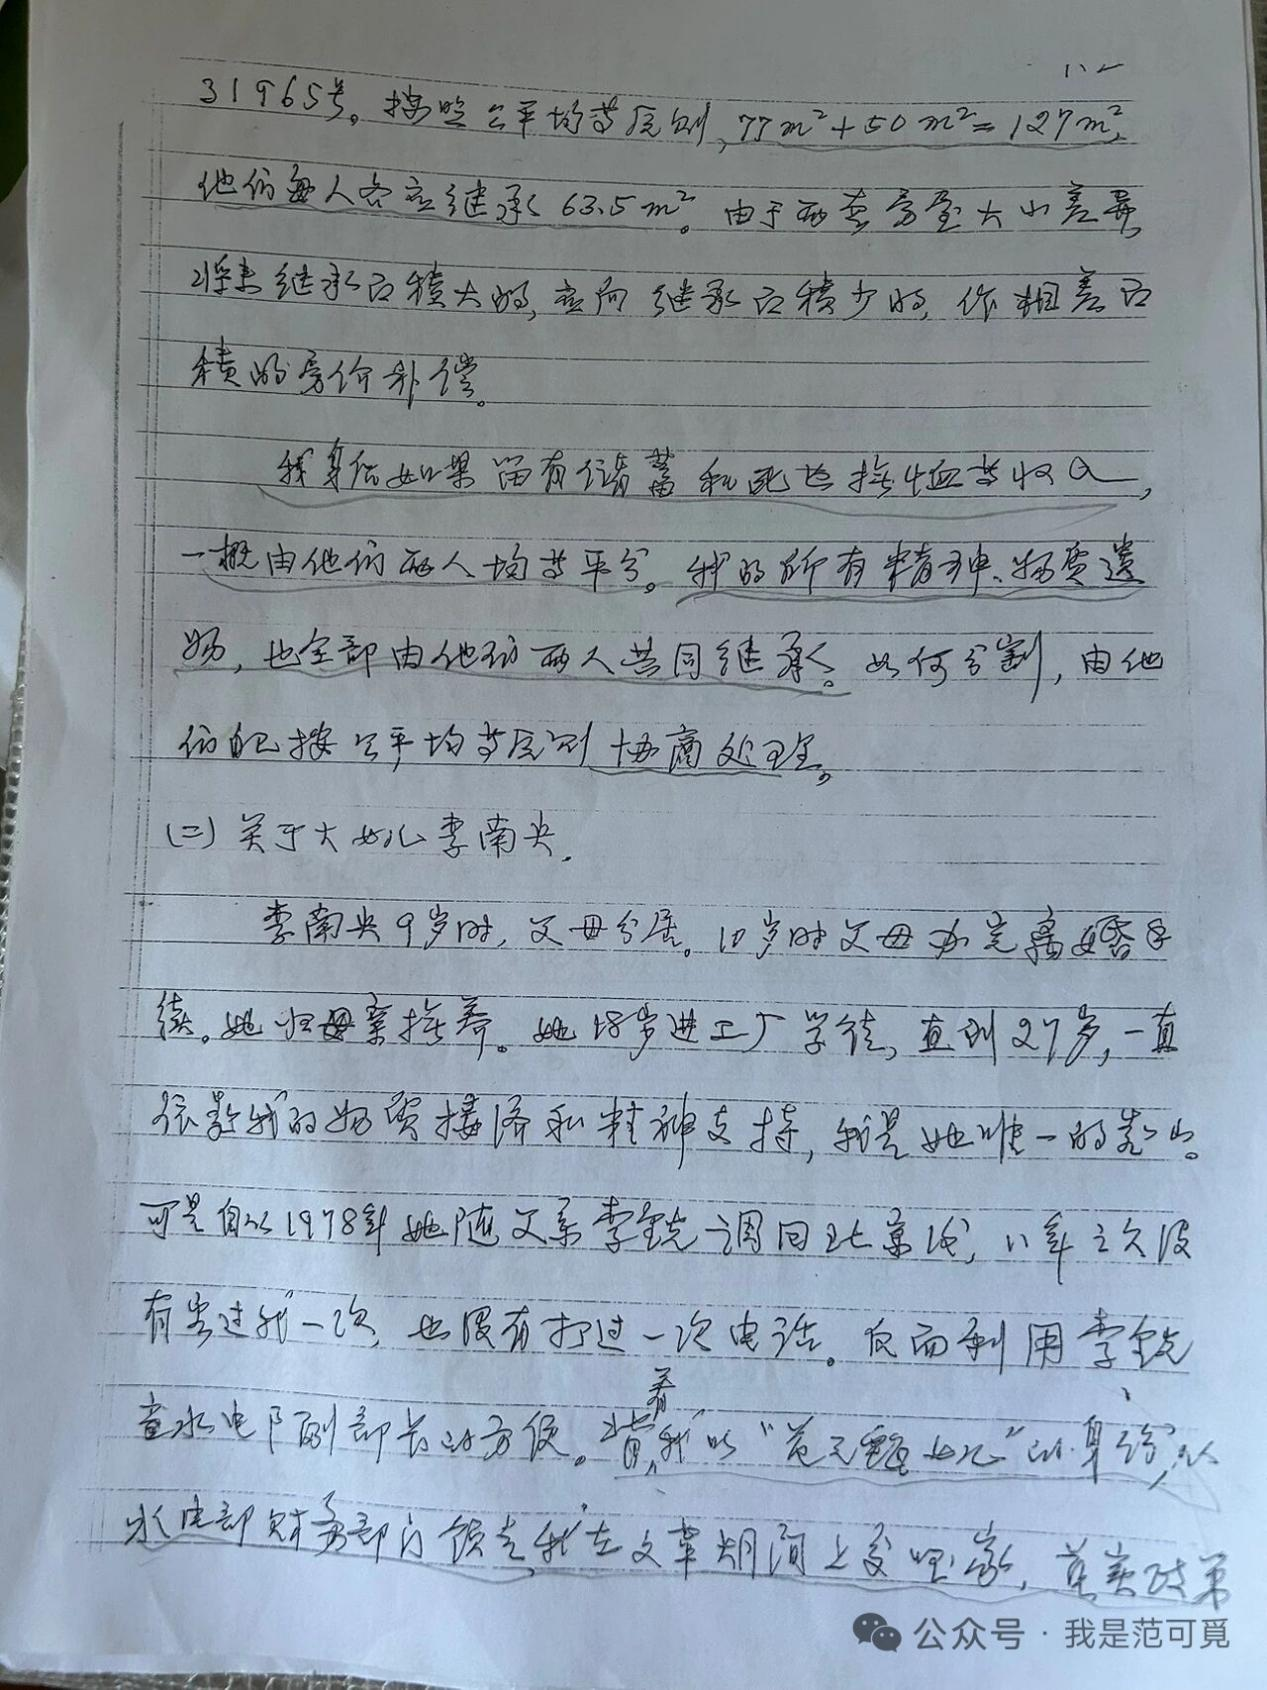 31965号。按照公平均等原则,77m²+50m²=127m²,
他们每人各应继承63.5m²。由于两套房屋大小差异,
将来继承面积大的,应向继承面积少的,作相差面
积的房价补偿。
我身后如果留有储蓄和死亡抚恤等收入,
一概由他们两人均等平分。我的所有精神、物质遗
物,也全部由他们两人共同继承。如何分割,由他
们自己按公平均等原则协商处理。
(二)关于大女儿李南央.
李南央9岁时,父母分居。10岁时父母办完离婚手
续。她归母亲抚养。她18岁进工厂学徒,直到27岁,一直
依靠我的物质接济和精神支持,我是她唯一的靠山。
可是自从1978年她随父亲李锐调回北京后,11年之久没
有来过我一次,也没有打过一次电话。反而利用李锐
查水电部副部长的方便。背着我以“范元甄女儿”的身份,从
水电部财务部门领走我在文革期间上交国家,落实政策
公众号·我是范可觅